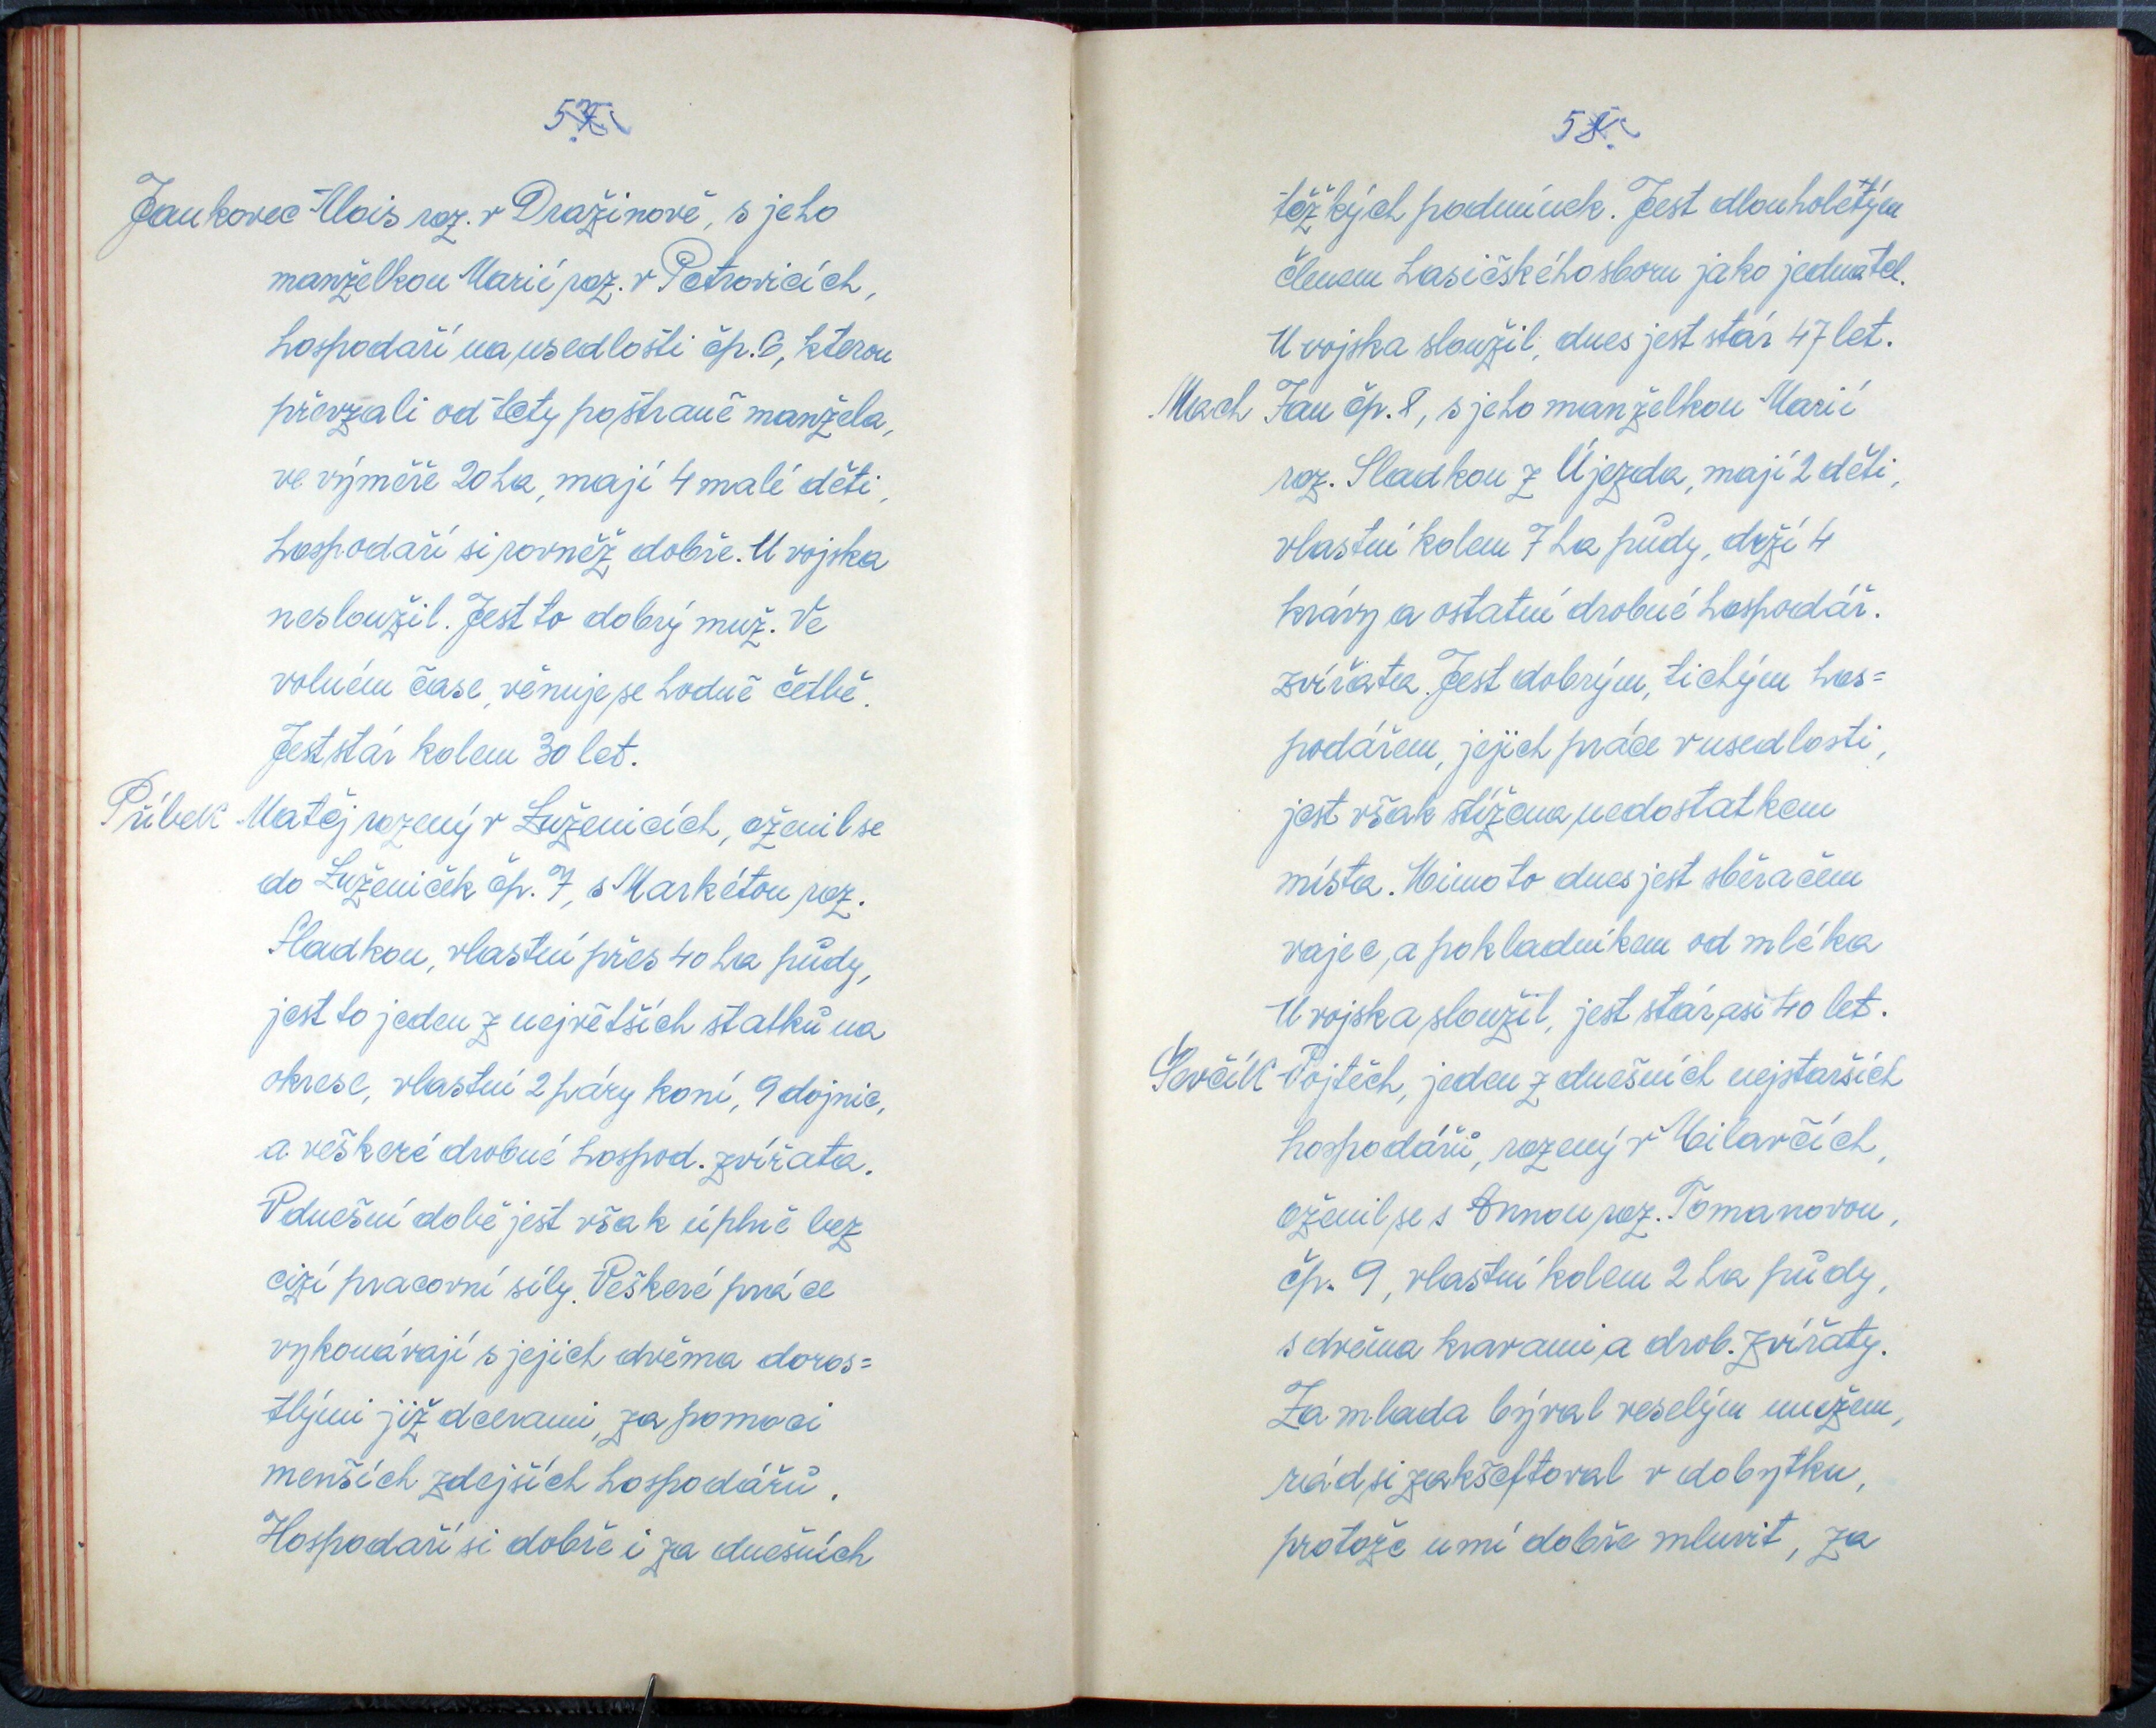 57.
Jankovec Alois roz. v Dražinově, s jeho
manželkou Marií roz. v Petrovicích,
hospodaří na usedlosti čp. 6, kterou
převzali od tety po straně manžela,
ve výměře 20 ha, mají 4 malé děti,
hospodaří si rovněž dobře. U vojska
nesloužil. Jest to dobrý muž. Ve
volném čase, věnuje se hodně četbě.
Jest stár kolem 30 let.
Příbek Matěj rozený v Luženicích, oženil se
do Luženiček čp. 7, s Markétou roz.
Sladkou, vlastní přes 40 ha půdy,
jest to jeden z největších statků na
okrese, vlastní 2 páry koní, 9 dojnic,
a veškeré drobné hospod. zvířata.
V dnešní době jest však úplně bez
cizí pracovní síly. Veškeré práce
vykonávají s jejich dvěma doros=
tlými již dcerami, za pomoci
menších zdejších hospodářů.
Hospodaří si dobře i za dnešních
58.
těžkých podmínek. Jest dlouholetým
členem hasičského sboru jako jednatel.
U vojska sloužil, dnes jest stár 47 let.
Mach Jan čp. 8, s jeho manželkou Marií
roz. Sladkou z Újezda, mají 2 děti,
vlastní kolem 7 ha půdy, drží 4
krávy a ostatní drobné hospodář.
zvířata. Jest dobrým, tichým hos=
podářem, jejich práce v usedlosti,
jest však stížena nedostatkem
místa. Mimo to dnes jest sběračem
vajec, a pokladníkem od mléka
U vojska sloužil, jest stár asi 40 let.
Ševčík Vojtěch, jeden z dnešních nejstarších
hospodářů, rozený v Milavčích,
oženil se s Annou roz. Tomanovou,
čp. 9, vlastní kolem 2 ha půdy,
s dvěma kravami a drob. zvířaty.
Za mlada býval veselým mužem,
rád si zakšeftoval v dobytku,
protože umí dobře mluvit, za